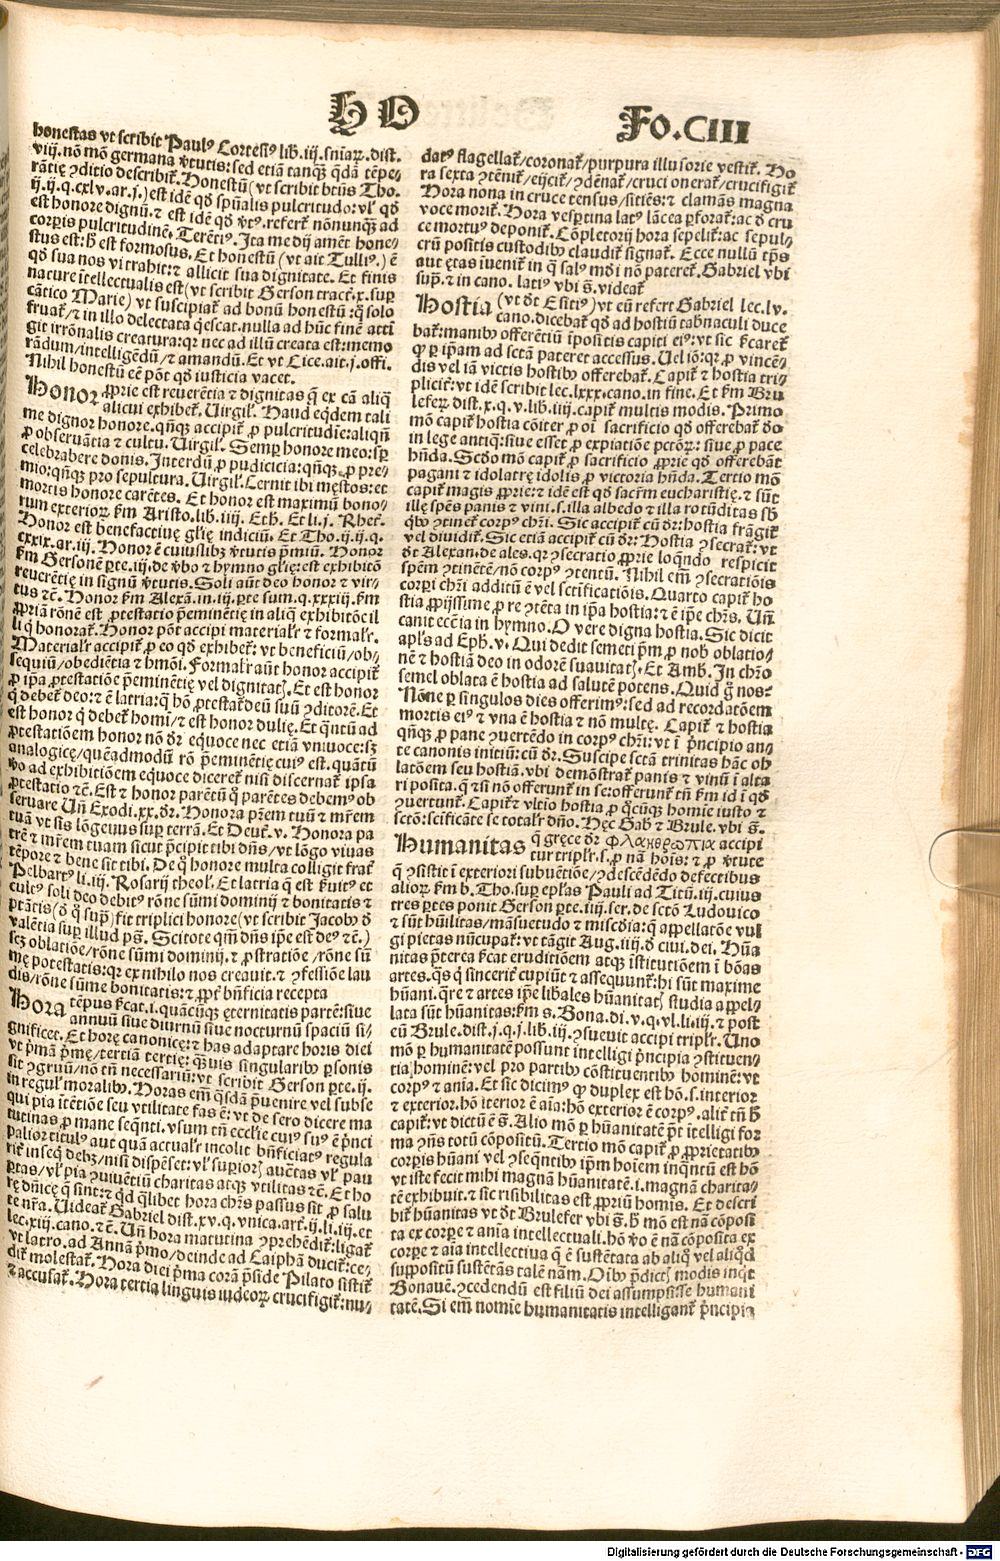 H O
Fo.CIII
honestas vt scribit Paulꝰ Cortesiꝰ lib.iij.sniaꝝ.dist.
viij.nō mō germana v̓tutis:sed etiā tanqꝫ q̄dā tēpe⸗
rātię ꝯditio describit᷑.Honestū(vt scribit btūs Tho.
ij.ij.q.cxlv.ar.j.)est idē qd̓ spūalis pulcritudo:vl̓ qd̓
est honore dignū.⁊ est idē qd̓ v̓tꝰ.refert᷑ nōnunqꝫ ad
corꝑis pulcritudinē.Terētiꝰ.Ita me dij amēt hone⸗
stus est:h̓ est formosus.Et honestū(vt ait Tulliꝰ.)ē
qd̓ sua nos vi trahit:⁊ allicit sua dignitate. Et finis
nature ītellectualis est(vt scribit Gerson tract.x.suꝑ
cātico Marie) vt suscipiat᷑ ad bonū honestū:q̓ solo
fruat᷑/⁊ in illo delectata q̓escat.nulla ad hūc finē atti
git irrōnalis creatura:qꝛ nec ad illū creata est:memo
rādum/intelligēdū/⁊ amandū.Et vt Cice.ait.j.offi.
Nihil honestū eē pōt qd̓ iusticia vacet.
Honor ꝓprie est reuerētia ⁊ dignitas q̄ ex cā aliq̄
alicui exhibet᷑. Virgil̓. Haud eqdem tali
me dignor honore.qn̄qꝫ accipit᷑ ꝓ pulcritudīe:aliqn̄
ꝓ obseruātia ⁊ cultu.Virgil̓.Semꝑ honore meo:sꝑ
celebrabere donis.Interdū ꝓ pudicicia:qn̄qꝫ.ꝓ pre⸗
mio:qn̄qꝫ pro sepultura.Virgil̓.Cernit ibi męstos:et
mortis honore carētes. Et honor est maximū bono⸗
rum exterioꝝ ẜm Aristo.lib.iiij. Eth. Et li.j. Rhet᷑.
Honor est benefactiuę glię indiciū. Et Tho.ij.ij.q.
cxxix.ar.iij.Honor ē cuiuslibꝫ v̓tutis p̄miū. Honor
ẜm Gersonē ꝑte.iij.de v̓bo ⁊ hymno glię:est exhibitō
reuerētię in signū v̓tutis.Soli aūt deo honor ⁊ vir⸗
tus ⁊ē.Honor ẜm Alexā.in.iij.ꝑte sum.q.xxxiij.ẜm
ꝓpriā rōnē est ꝓtestatio p̄eminētię in aliq̄ exhibitōe il
li q̓ honorat᷑.Honor pōt accipi materialr̓ ⁊ formalr̓.
Materialr̓ accipit᷑ ꝓ eo qd̓ exhibet᷑:vt beneficiū/ob⸗
sequiū/obediētia ⁊ hmōi.Formalr̓ aūt honor accipit᷑
ꝓ ip̄a ꝓtestatiōe p̄eminētię vel dignitatꝭ.Et est honor
q̓ debet᷑ deo:⁊ ē latria:q̓ hō ꝓtestat᷑ deū suū ꝯditorē.Et
est honor q̓ debet᷑ homi/⁊ est honor dulię.Et q̓ntū ad
ꝓtestatiōem honor nō dr̓ equoce nec etiā vniuoce:sꝫ
analogice/quēadmodū rō p̄eminētię cuiꝰ est.quātū
v̓o ad exhibitiōem equoce diceret᷑ nisi discernat᷑ ipsa
ꝓtestatio ⁊ē.Est ⁊ honor parētū q̓ parētes debemꝰ ob
seruare Un̄ Exodi.xx.dr̓.Honora pr̄em tuū ⁊ mr̄em
tuā vt sis lōgeuus suꝑ terrā.Et Deut᷑.v. Honora pa
trē ⁊ mr̄em tuam sicut p̄cipit tibi dn̄s/vt lōgo viuas
tēpore ⁊ bene sit tibi. De q̓ honore multa colligit frat᷑
Pelbartꝰ li.iij. Rosarij theol̓.Et latria q̄ est ẜuitꝰ et
cultꝰ soli deo debitꝰ rōne sūmi dominij ⁊ bonitatis ⁊
ptātis(d̓ q̓ suꝑ)fit triplici honore(vt scribit Jacob d̓
valētia suꝑ illud ps̄. Scitote qm̄ dn̄s ip̄e est deꝰ ⁊ē.)
scꝫ oblatiōe/rōne sūmi dominij.⁊ ꝓstratiōe /rōne sū⸗
mę potestatis:qꝛ ex nihilo nos creauit.⁊ ꝯfessiōe lau
dis/rōne sūme bonitatis:⁊ ꝓpt᷑ bn̄ficia recepta
Hora tēpus ẜcat.i.quācūqꝫ ęternitatis partē:siue
annuū siue diurnū siue nocturnū spaciū si⸗
gnificet.Et horę canonicę:⁊ has adaptare horis diei
vt p̄mā p̄mę/tertiā tertię: q̄uis singularib ꝑsonis
sit ꝯgruū/nō tn̄ necessariū:vt scribit Gerson ꝑte.ij.
in regul̓ moralib. Horas em̄ q̓sdā p̄uenire vel subse
qui pia ītētiōe seu vtilitate fas ē:vt de sero dicere ma
tutinas,ꝓ mane seq̄nti.vsum tn̄ ecclīe cuiꝰ sūꝰ ē p̄nci
palior titulꝰ aut quā actualr̓ incolit bn̄ficiatꝰ regula
rit᷑ inseq̄ debꝫ/nisi dispēset:vl̓ suꝑioꝝ auētas vl̓ pau
ꝑtas/vl̓ pia ꝯuiuētiū charitas atqꝫ vtilitas ⁊ē. Et ho
rę dn̄icę q̓ sint:⁊ q̓d q̓libet hora chr̄s passus sit ꝓ salu
te nr̄a.Uideat᷑ Gabriel dist.xv.q.vnica.art᷑.ij.li.iij.et
lec.xiij.cano.⁊ē.Un̄ hora matutina ꝯprehēdit᷑:ligat᷑
vt latro.ad Annā p̄mo/deinde ad Caiphā ducit᷑:ce⸗
dit᷑ molestat᷑.Hora diei p̄ma corā p̄side Pilato sistit᷑
⁊ accusat᷑.Hora tertia linguis iudeoꝝ crucifigit᷑:nu⸗
datꝰ flagellat᷑/coronat᷑/purpura illusorie vestit᷑. Ho
ra sexta ꝯtēnit᷑/eijcit᷑/ꝯdēnat᷑/cruci onerat᷑/crucifigit᷑
Hora nona in cruce tensus/sitiēs:⁊ clamās magna
voce morit᷑. Hora vesꝑtina latꝰ lācea ꝑforat᷑:ac d̓ cru
ce mortuꝰ deponit᷑. Cōpletorij hora sepelit᷑:ac sepul⸗
crū positis custodib claudit᷑ signat᷑. Ecce nullū tp̄s
aut ętas īuenit᷑ in q̓ salꝰ md̓i nō pateret᷑. Gabriel vbi
suꝑ.⁊ in cano. latiꝰ vbi s̄.videat᷑
Hostia (vt dt̓ Esitiꝰ)vt cū refert Gabriel lec.lv.
cano.dicebat᷑ qd̓ ad hostiū tabnaculi duce
bat᷑:manib offerētiū īpositis capiti eiꝰ:vt sic ẜcaret᷑
q̓ ꝑ ip̄am ad sctā pateret accessus. Uel iō:qꝛ ꝓ vincē⸗
dis vel iā victis hostib offerebat᷑. Capit᷑ ⁊ hostia tri⸗
plicit᷑:vt idē scribit lec.lxxx.cano.in fine. Et ẜm Bru
leferꝝ dist.x.q.v.lib.iiij.capit᷑ multis modis. Primo
mō capit᷑ hostia cōiter ꝓ oī sacrificio qd̓ offerebat᷑ do
in lege antiq̓:siue esset ꝓ expiatiōe pctōꝝ: siue ꝓ pace
hn̄da. Scd̓o mō capit᷑ ꝓ sacrificio ꝓprie qd̓ offerebāt
pagani ⁊ idolatrę idolis ꝓ victoria hn̄da. Tertio mō
capit᷑ magis ꝓprie:⁊ idē est qd̓ sacr̄m eucharistię.⁊ sūt
illę spēs panis ⁊ vini.s.illa albedo ⁊ illa rotūditas sb̓
q̓b ꝯtinet᷑ corpꝰ chr̄i. Sic accipit᷑ cū dr̓:hostia frāgit᷑
vel diuidit᷑. Sic etiā accipit᷑ cū dr̓: Hostia ꝯsecrat᷑: vt
dt̓ Alexan.de ales.qꝛ ꝯsecratio ꝓprie loq̄ndo respicit
spēm ꝯtinētē/nō corpꝰ ꝯtentū. Nihil em̄ ꝯsecratiōis
corpori chr̄i additū ē vel sctificatiōis. Quarto capit᷑ ho
stia ꝓprijssime ꝓ re ꝯtēta in ip̄a hostia:⁊ ē ip̄e chr̄s. Un̄
canit ecclīa in hymno. O vere digna hostia. Sic dicit
apl̓s ad Eph.v. Qui dedit semetip̄m ꝓ nob oblatio⸗
nē ⁊ hostiā deo in odorē suauitatꝭ. Et Amb. In chr̄o
semel oblata ē hostia ad salutē potens. Quid q̓ nos?
Nōne ꝑ singulos dies offerimꝰ:sed ad recordatōem
mortis eiꝰ ⁊ vna ē hostia ⁊ nō multę. Capit᷑ ⁊ hostia
qn̄qꝫ ꝓ pane ꝯuertēdo in corpꝰ chr̄i:vt ī p̄ncipio an⸗
te canonis initiū:cū dr̓. Suscipe sctā trinitas hāc ob
latōem seu hostiā.vbi demōstrat᷑ panis ⁊ vinū ī alta
ri posita.q̓ ⁊si nō offerunt᷑ in se:offerunt᷑ tn̄ ẜm id ī qd̓
ꝯuertunt᷑. Capit᷑ ⁊ vltio hostia ꝓ q̓cūqꝫ homīe iusto ⁊
sctō:scificāte se totalr̓ dn̄o. Hęc Gab ⁊ Brule.vbi s̄.
Humanitas q̓ gręce dr̓ φιλανθρωπια accipi
tur triplr̓.s.ꝓ nā hōis:⁊ ꝓ v̓tute
q̄ ꝯsistit ī exteriori subuētiōe/ꝯdescēdēdo defectibus
alioꝝ ẜm b.Tho.suꝑ ep̄las Pauli ad Titū.iij.cuius
tres ꝑtes ponit Gerson ꝑte.iiij.ser.de sctō Ludouico
⁊ sūt hūilitas/māsuetudo ⁊ miscd̓ia:q̄ appellatōe vul
gi pietas nūcupat᷑:vt tāgit Aug.iiij.d̓ ciui.dei. Hūa
nitas p̄terea ẜcat eruditiōem atqꝫ īstitutiōem ī bōas
artes.q̓s q̓ sincerit᷑ cupiūt ⁊ assequunt᷑:hi sūt maxime
hūani.q̓re ⁊ artes ip̄e libales hūanitatꝭ studia appel⸗
lata sūt hūanitas:ẜm s.Bona.di.v.q.vl.li.iij.⁊ post
eū Brule.dist.j.q.j.lib.iij.ꝯsueuit accipi triplr̓. Uno
mō ꝑ humanitatē possunt intelligi p̄ncipia ꝯstituen⸗
tia hominē: vel pro partib cōstituentib hominē:vt
corpꝰ ⁊ anīa. Et sic dicimꝰ q̓ duplex est hō.s.interior
⁊ exterior.hō īterior ē aīa:hō exterior ē corpꝰ.alit᷑ tn̄ h̓
capit᷑:vt dictū ē s̄. Alio mō ꝑ hūanitatē p̄t itelligi for
ma ꝯn̄s totū cōpositū. Tertio mō capit᷑ ꝓ ꝓprietatib
corꝑis hūani vel ꝯseq̄ntib ip̄m hoīem inq̓ntū est hō
vt iste fecit mihi magnā hūanitatē.i.magnā charita⸗
tē exhibuit.⁊ sic risibilitas est ꝓpriū homīs. Et descri
bit᷑ hūanitas vt dt̓ Brulefer vbi s̄.h̓ mō est nā cōposi
ta ex corpe ⁊ anīa intellectuali.hō v̓o ē nā cōposita ex
corꝑe ⁊ aīa intellectiua q̄ ē sustētata ab aliq̓ vel aliq̓d
suppositū sustētās talē nām. Oīb p̄dictꝭ modis inq̓t
Bonauē.ꝯcedendū est filiū dei assumpsisse humani
tatē. Si em̄ nomīe humanitatis intelligant᷑ p̄ncipia
Digitalisierung gefördert durch die Deutsche Forschungsgemeinschaft - DFG